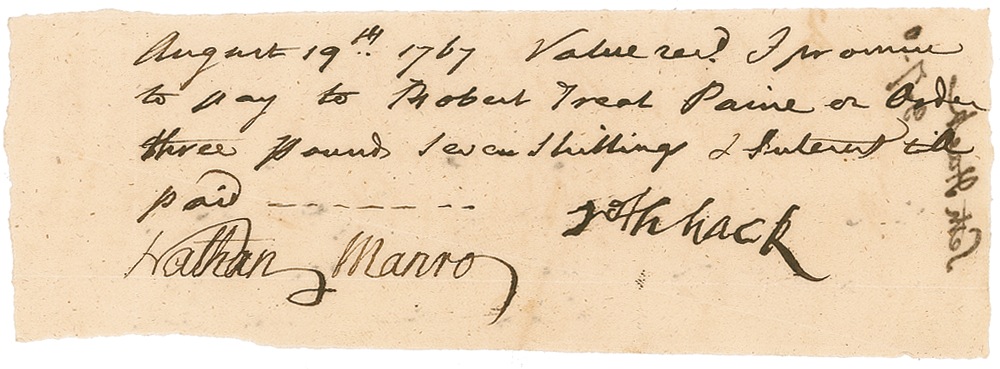 August 19th 1767 Value recd. I promise
to pay to Robert Treat Paine or Order
three pounds seven shillings & Interest till
paid
Nathan Manro
hack